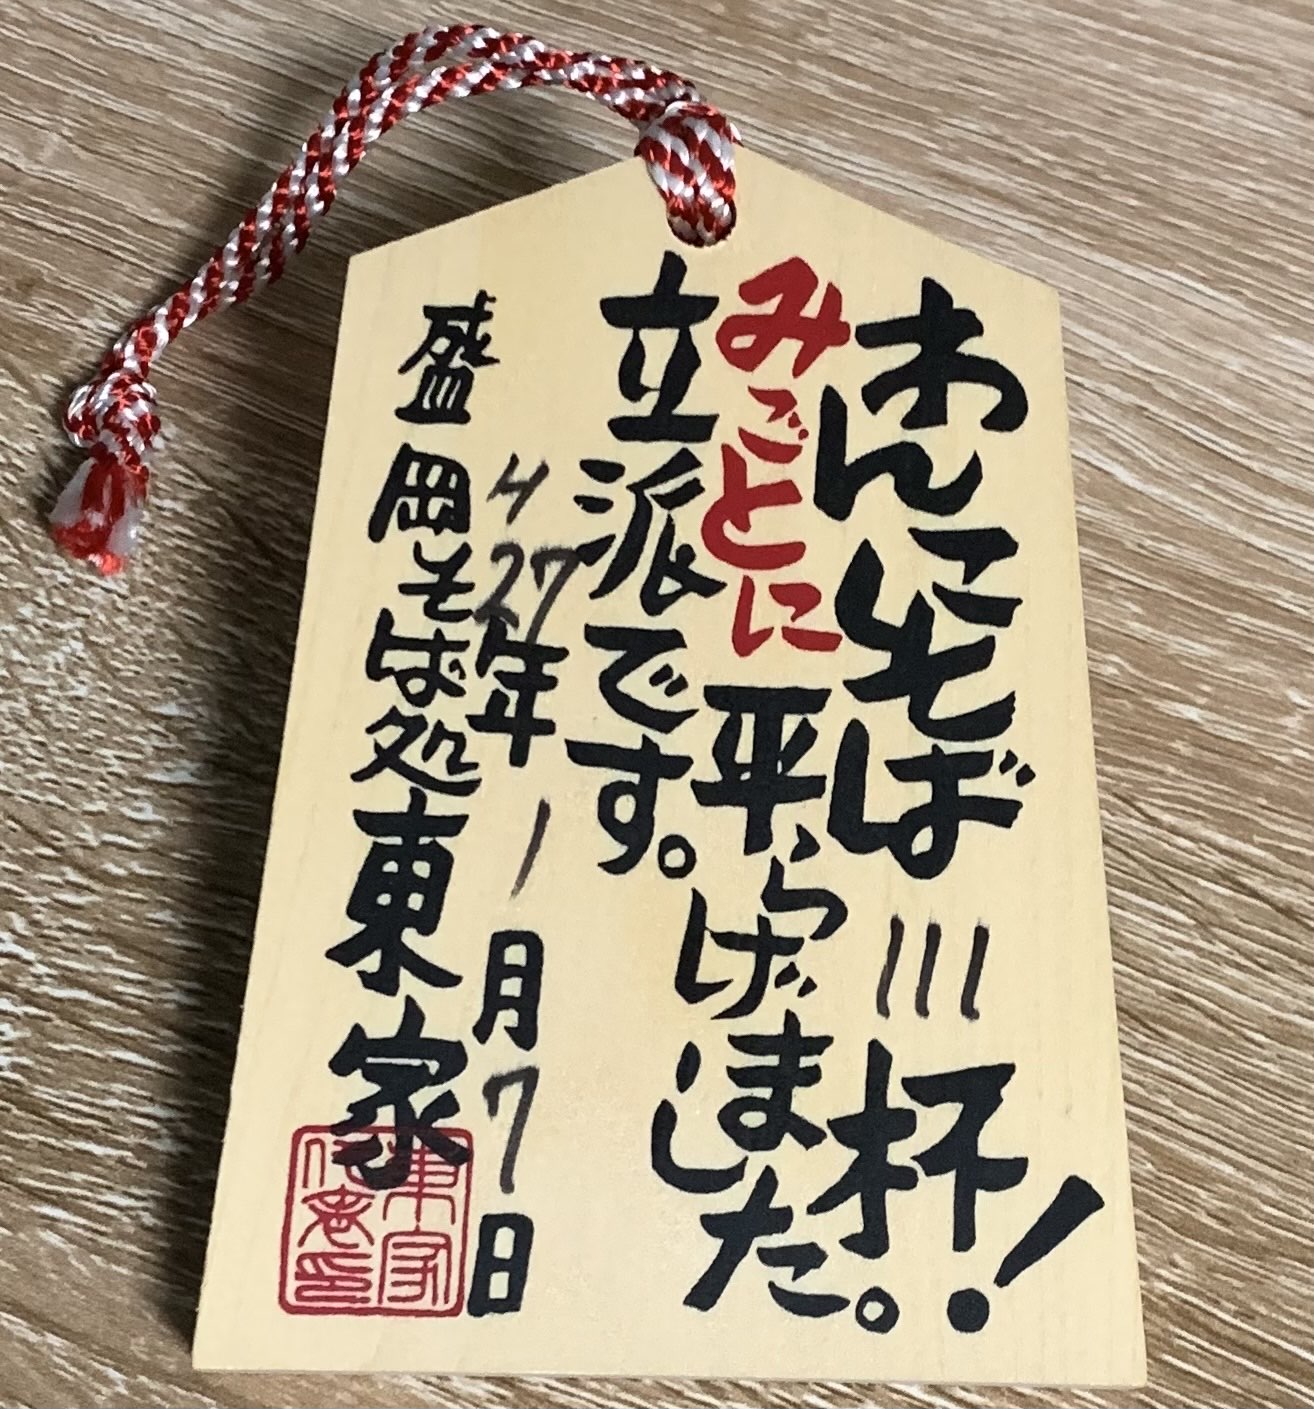 わんこそば 111 杯!
みごとに平らげました。
立派です。
H27年1月7日
盛岡そば処東家